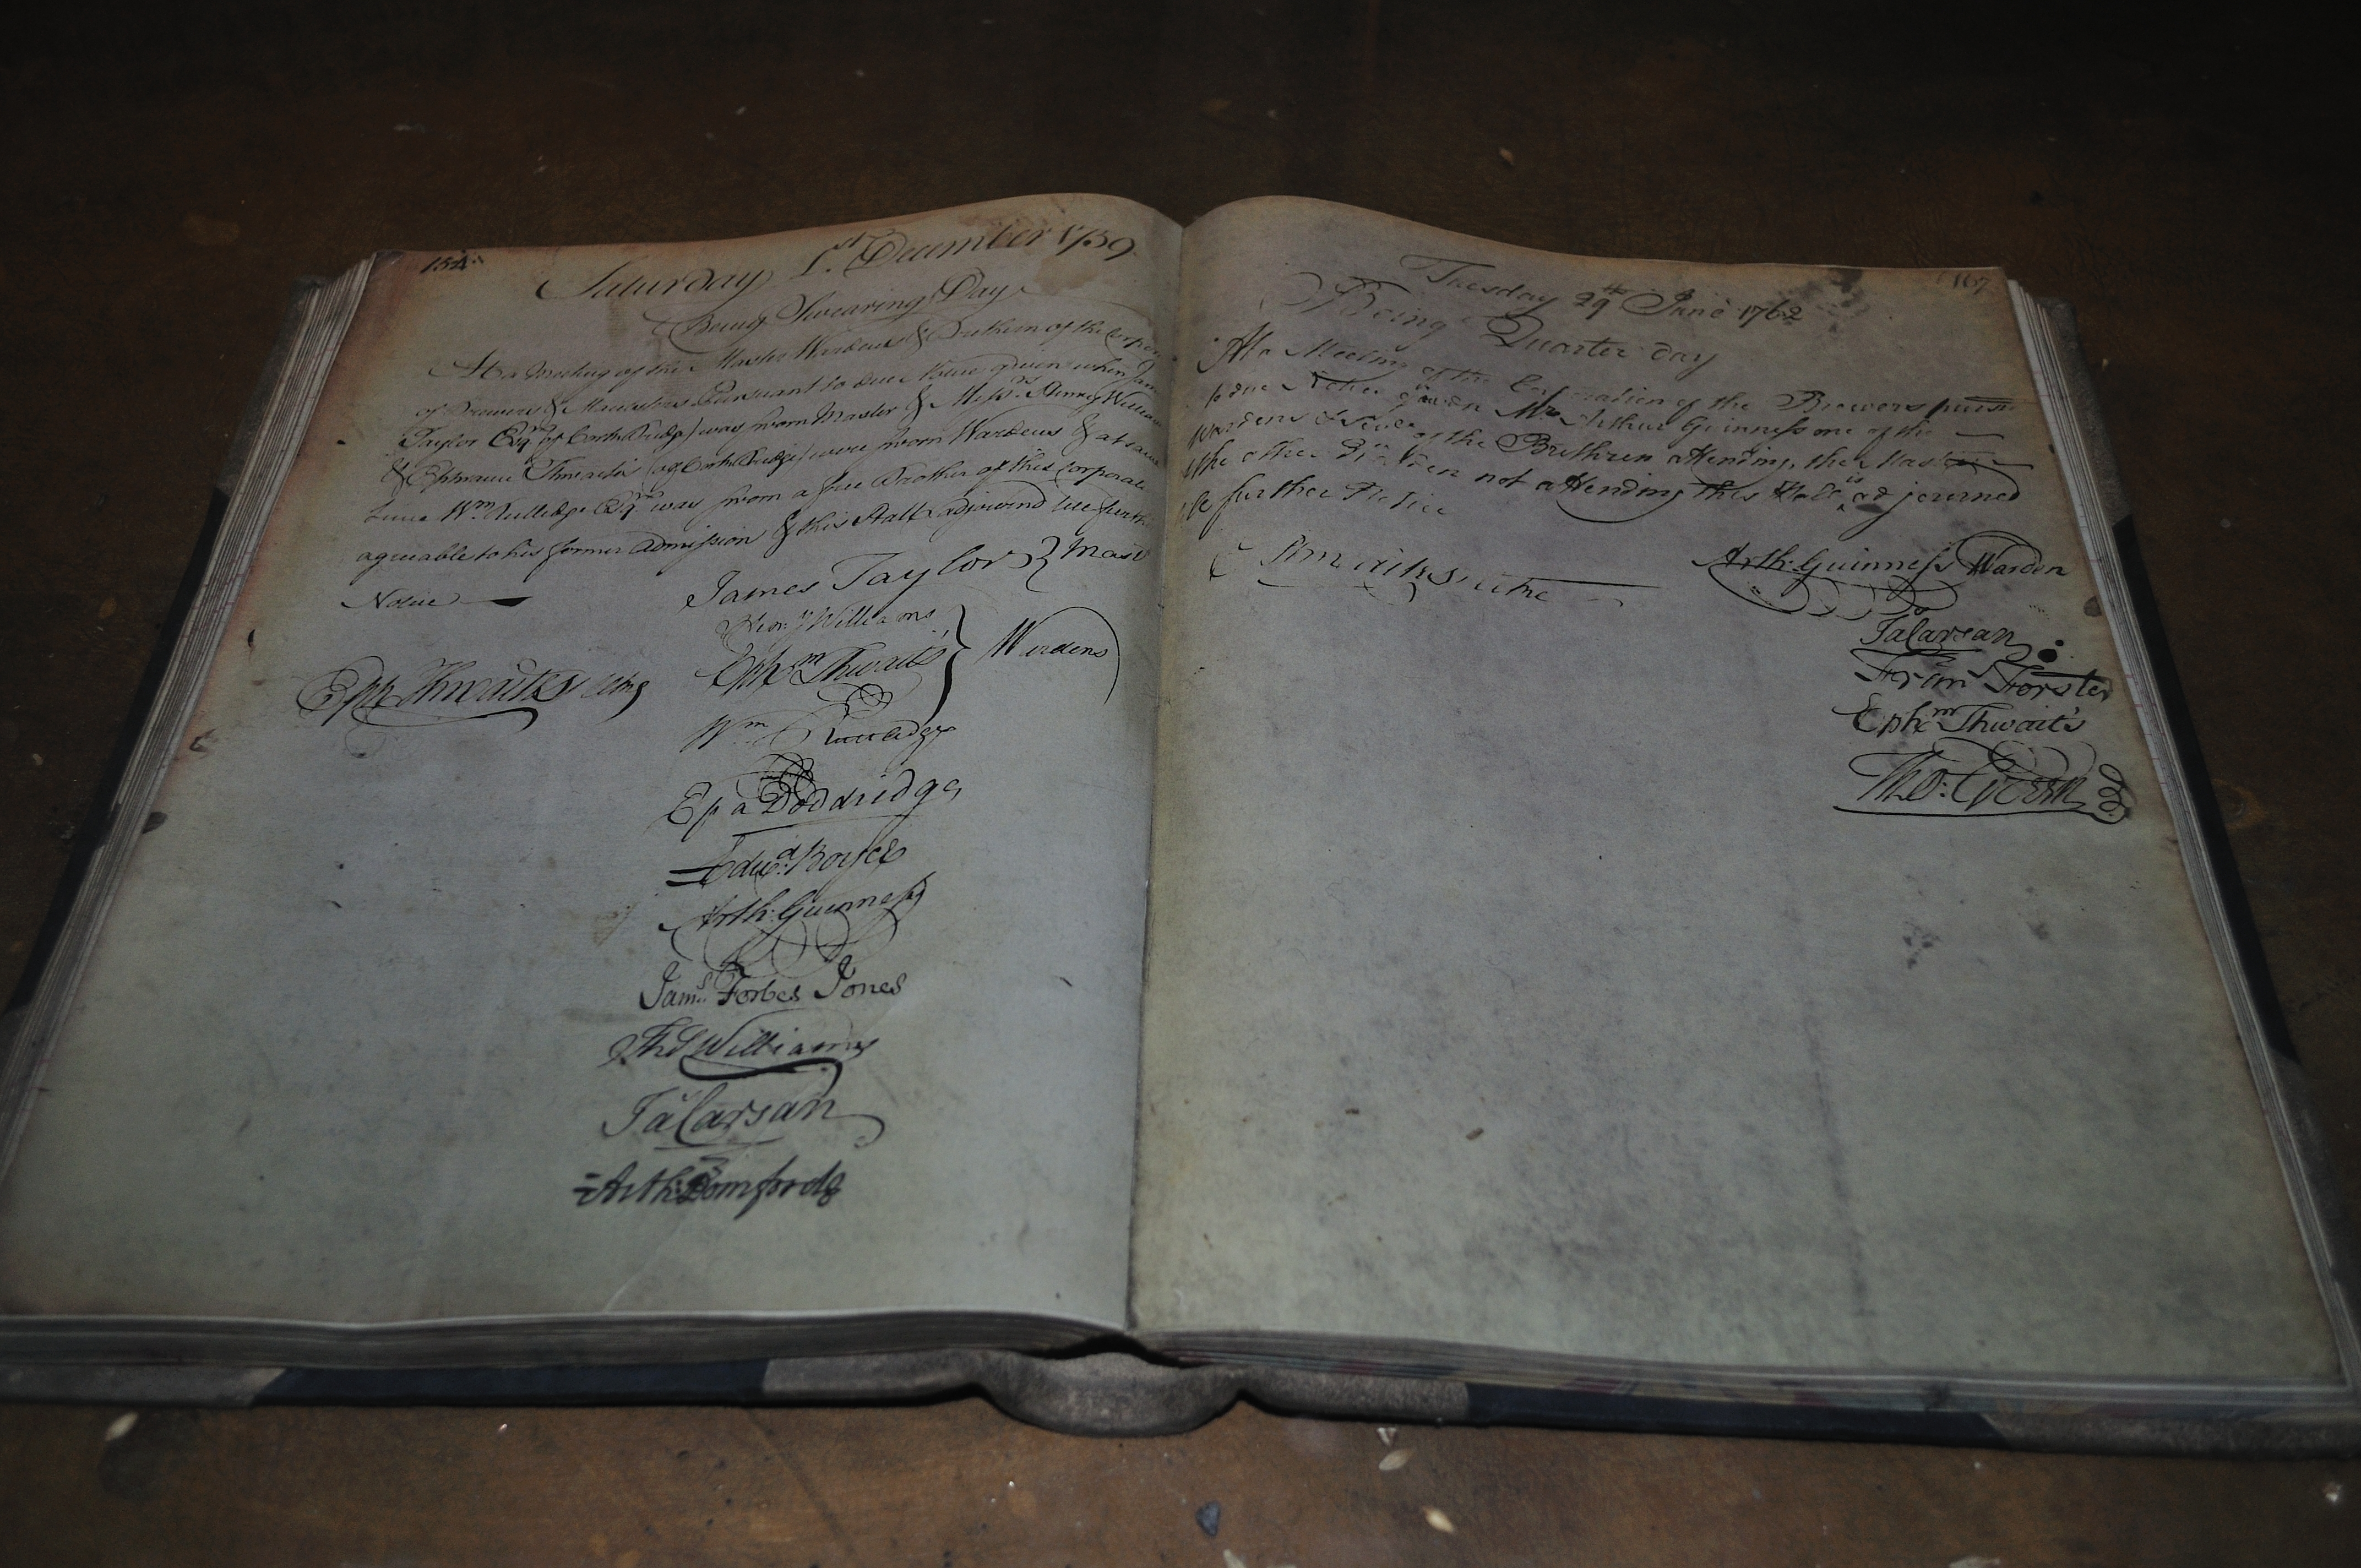 154
Saturday 1st December 1759
Being Swearing Day
At a Meeting of the Master Wardens & Brethren of the Corpora
of Brewers & Maulsters Pursuant to due Notice given when Jam
Taylor Esqr (of Cork Bridge) was sworn Master & Messrs. Henry William
& Ephraim Thwaits (of Cork Bridge) were sworn Wardens & at same
time Wm Rutledge Esqr was sworn a free Brother of this Corporati
agreeable to his former Admission & this Hall adjournd till furth
Notice
James Taylor } Mastr
Hen:y Williams
Ephm Thwaits } Wardens
Eph Thwaits
Wm Rutledge
Epa Doddridge
Edwd. Boyce
Arth: Guinness
Jams. Forbes Jones
Thos Williams
Ja Carsan
Arth:
167
Tuesday 29th June 1762
Being Quarter day
At a Meeting of the Corporation of the Brewers pursut
to due Notice given Mr Arthur Guinness one of the
Wardens & of the Brethren Attending, the Master
& the other Warden not attending this Hall is adjourned
till further Notice
Arth: Guinness Warden
Ja Carsan
Fran Forster
Ephm Thwaits
Tho: Green